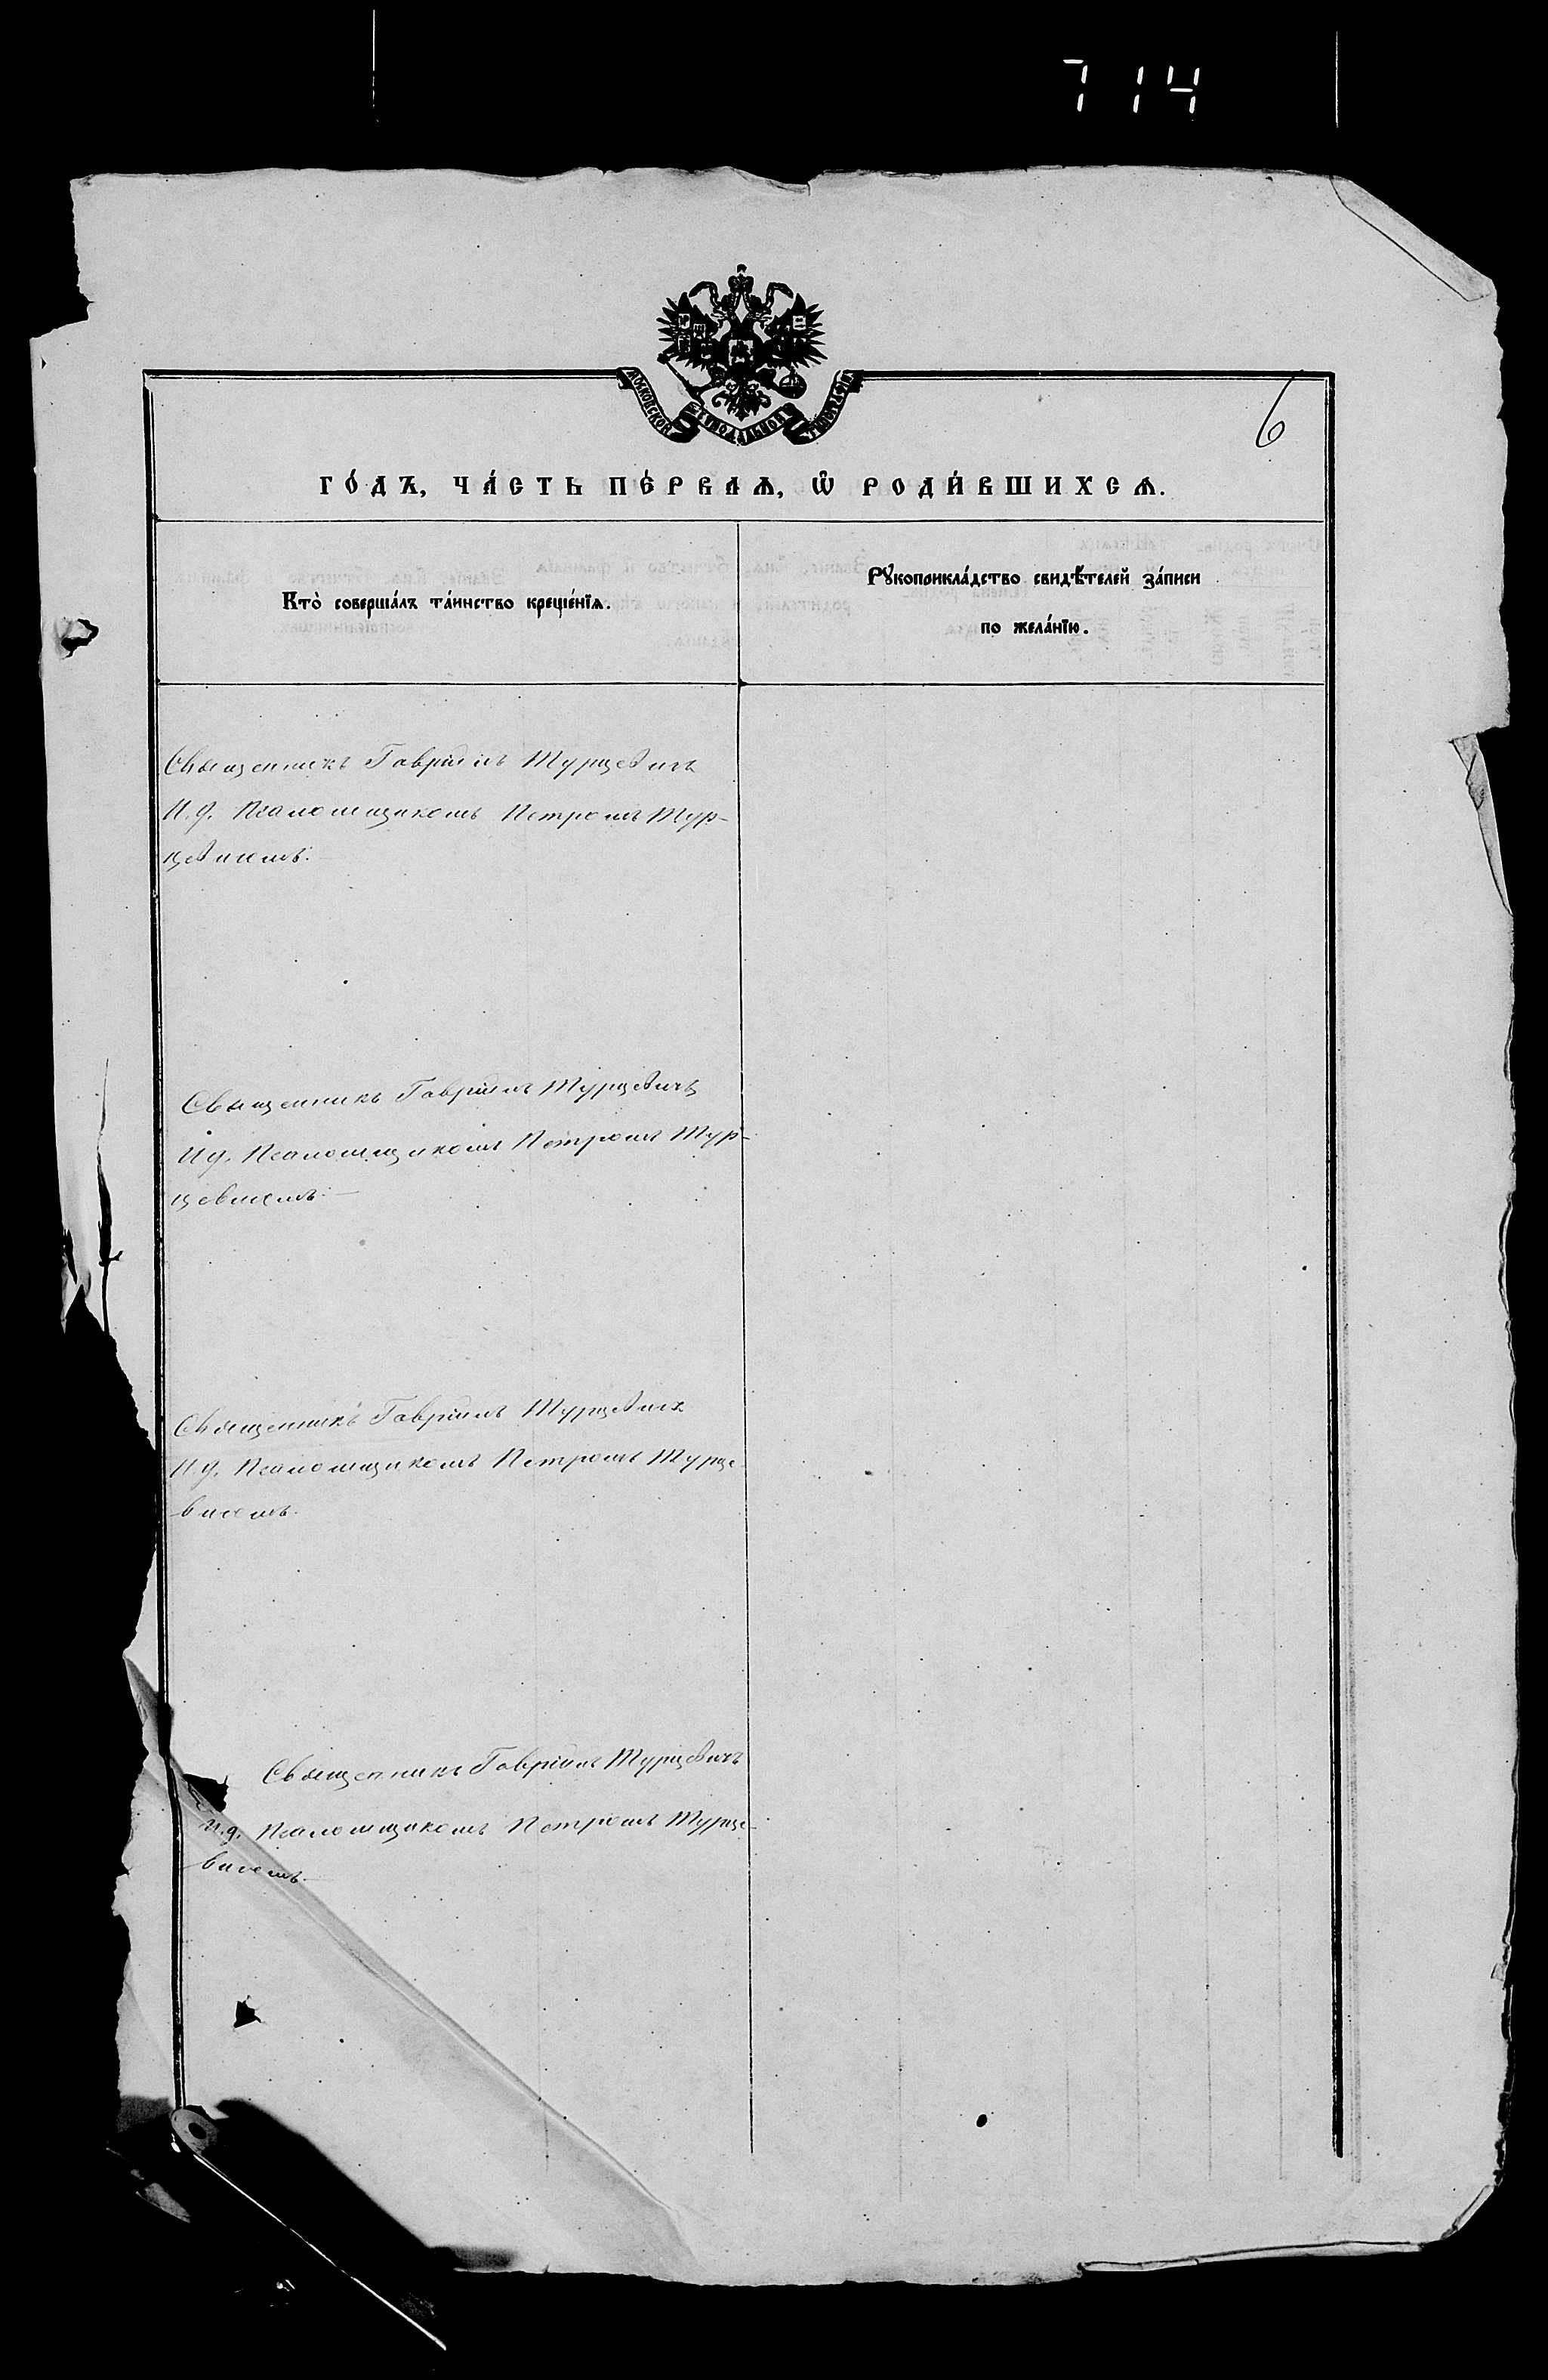 714
МОСКОВСКОЙ СѴНОДАЛЬНОЙ ТИПОГРАФІИ
6
ГО́ДЪ, ЧА́СТЬ ПЕ́РВАѦ, Ѡ҆ РОДИ́ВШИХСѦ.
Кто̀ соверша́лъ та́инство креще́нїѧ.
Рꙋкоприкла́дство свидѣ́телей за́писи
по жела́нїю.
Священникъ Гавріилъ Турцевичъ
И. д. Псаломщикомъ Петромъ Тур-
цевичемъ.
Священникъ Гавріилъ Турцевичъ
И д. Псаломщикомъ Петромъ Тур-
цевичемъ.
Священникъ Гавріилъ Турцевичъ
И. д. Псаломщикомъ Петромъ Турце
вичемъ.
Священникъ Гавріилъ Турцевичъ
И. д. Псаломщикомъ Петромъ Турце-
вичемъ.